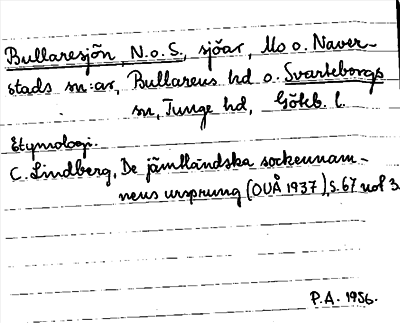 Bullaresjön, N.o.S., sjöar, Mo o. Naver-
stads sn:ar, Bullarens hd o. Svarteborgs
sn, Tunge hd, Göteb. l.
Etymologi.
C. Lindberg, De jämtländska sockennam-
nens ursprung (OUÅ 1937), s. 67 not 3.
P.A. 1956.